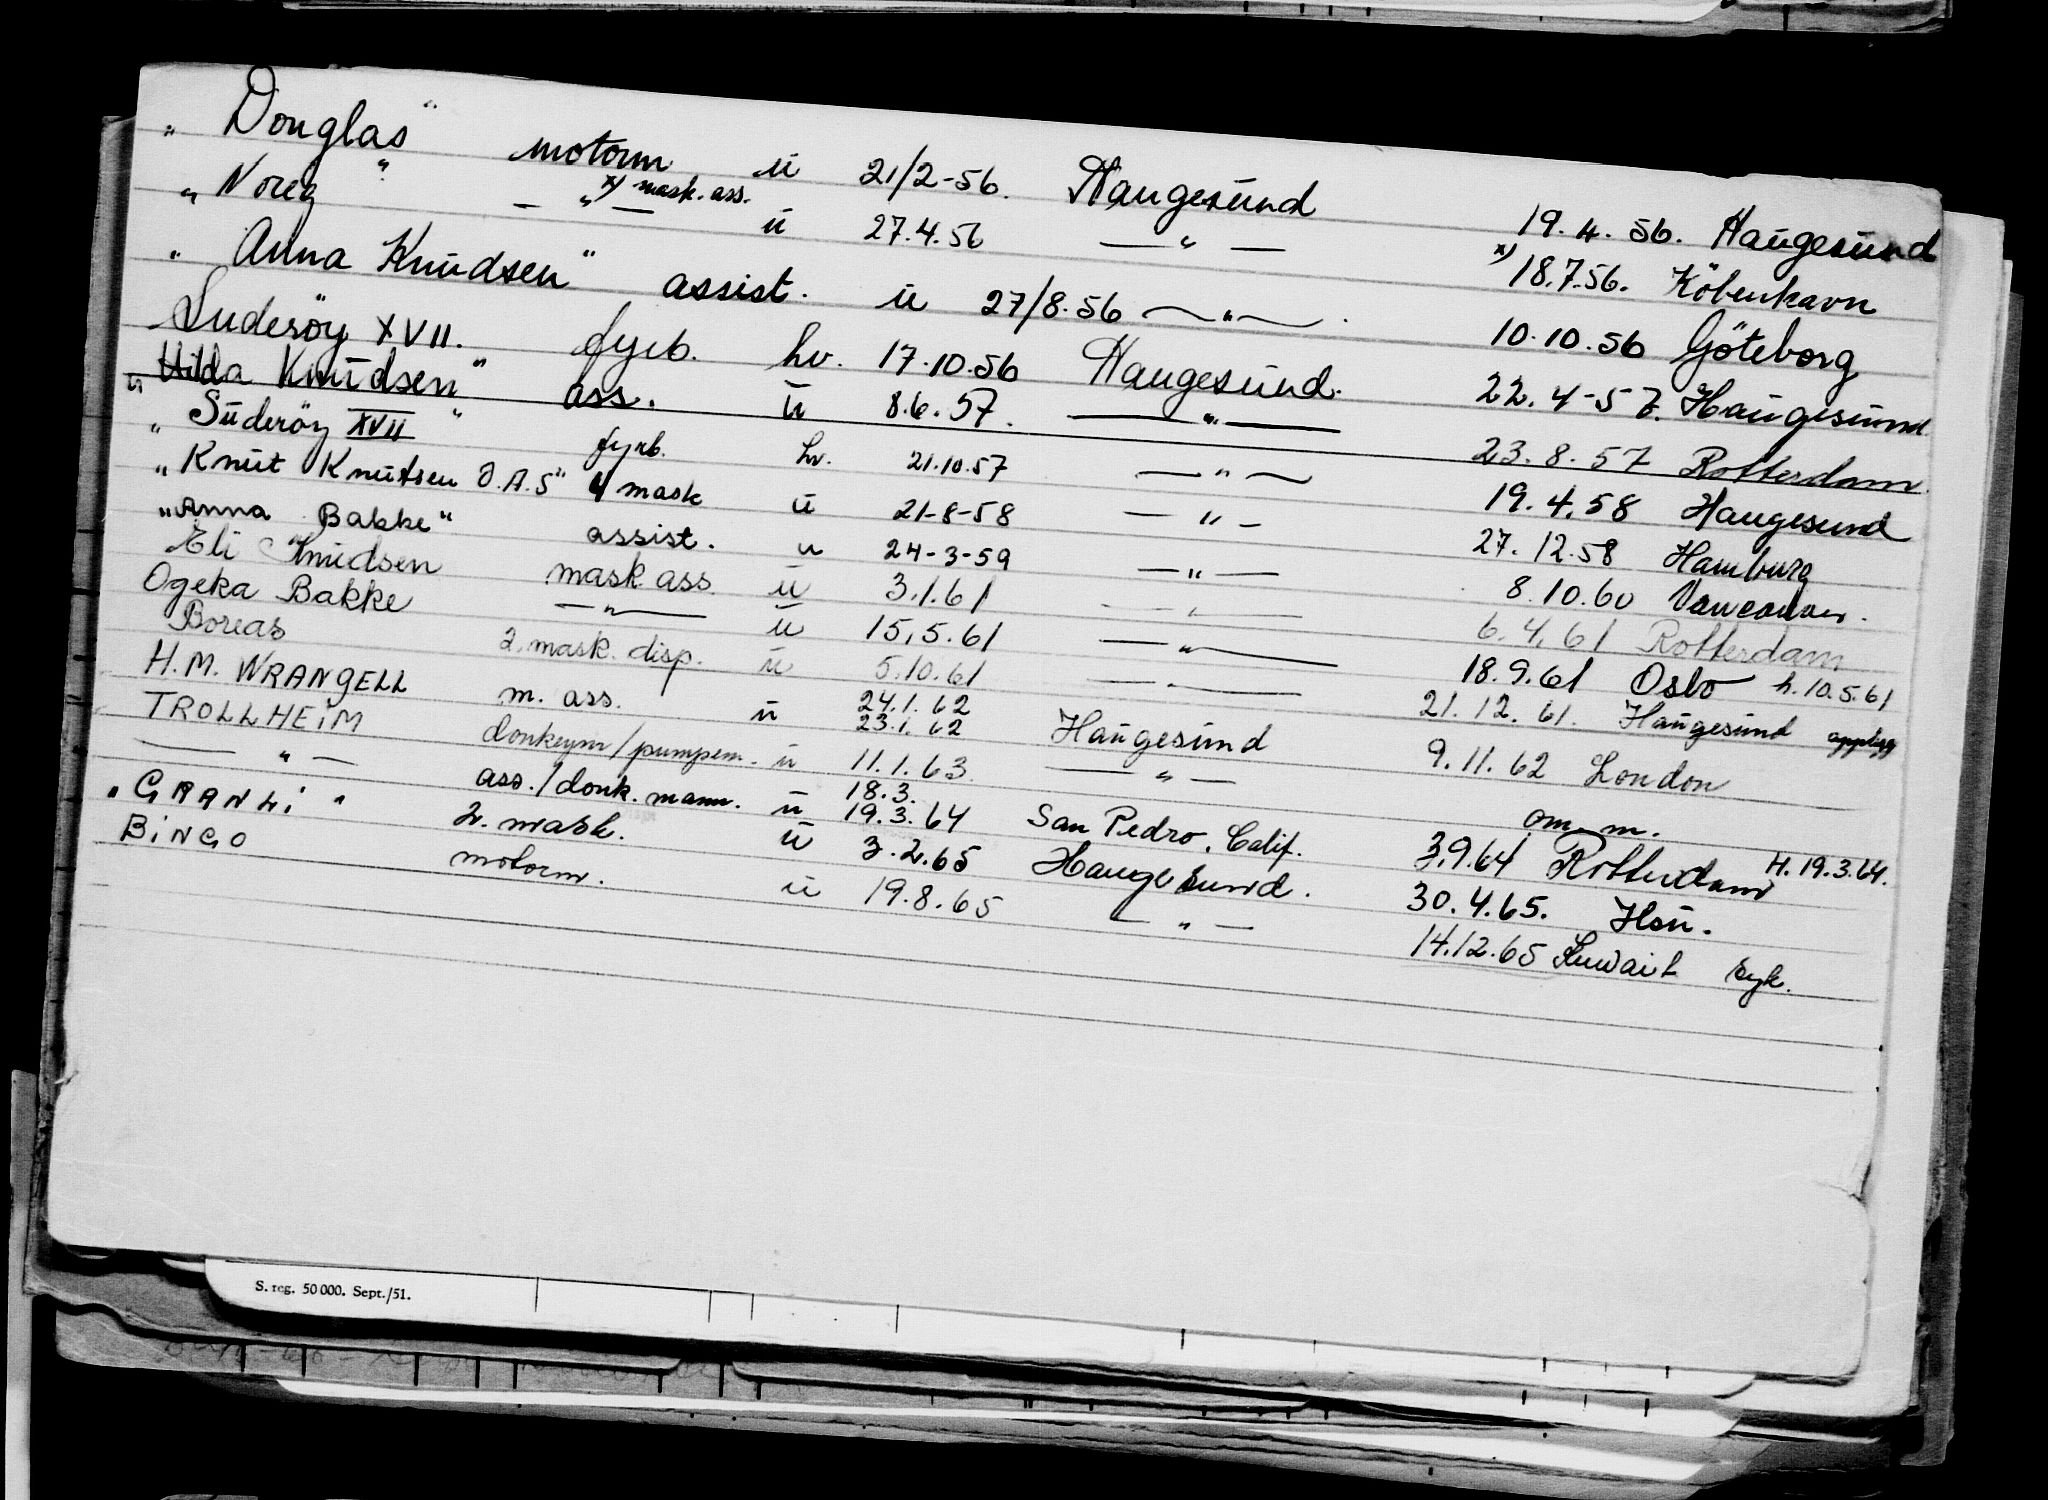 „ Douglas " motorm u 21/2-56. Haugesund 19.4.56. Haugesund
„ Noreg " — " — x) mask. ass. u 27.4.56 — " — x) 18.7.56. Köbenhavn
„ Anna Knudsen " assist. u 27/8.56 — " — . 10.10.56 Göteborg
Suderöy XVII. fyrb. hv. 17.10.56 Haugesund. 22.4-57. Haugesund
„ Hilda Knudsen " ass. u 8.6.57. — " — 23.8.57 Rotterdam
„ Suderöy XVII " fyrb. hv. 21.10.57 — " — 19.4.58 Haugesund
„ Knut Knutsen O.A.S" 4 mask u 21-8-58 — " — 27.12.58 Hamburg
„Anna Bakke" assist. u 24-3-59 — " — 8.10.60 Vancouver.
Eli Knudsen mask ass. u 3.1.61 — " — 6.4.61 Rotterdam
Ogeka Bakke — " — u 15.5.61 — " — 18.9.61 Oslo h. 10.5.61
Boreas 2. mask. disp. u 5.10.61 — " — 21.12.61. Haugesund opplegg
H.M. WRANGELL m. ass. u 24.1.62 23.1.62 Haugesund 9.11.62 London
TROLLHEIM donkeym/pumpem. u 11.1.63 — " — om. m.
— " — ass./donk. mann. u 18.3. 19.3.64 San Pedro, Calif. 3.9.64 Rotterdam H. 19.3.64.
„GRANLI " 2. mask. u 3.2.65 Haugesund. 30.4.65. Hsu.
BINGO motorm. u 19.8.65 — " — 14.12.65 Kuwait syk.
S. reg. 50 000. Sept./51.